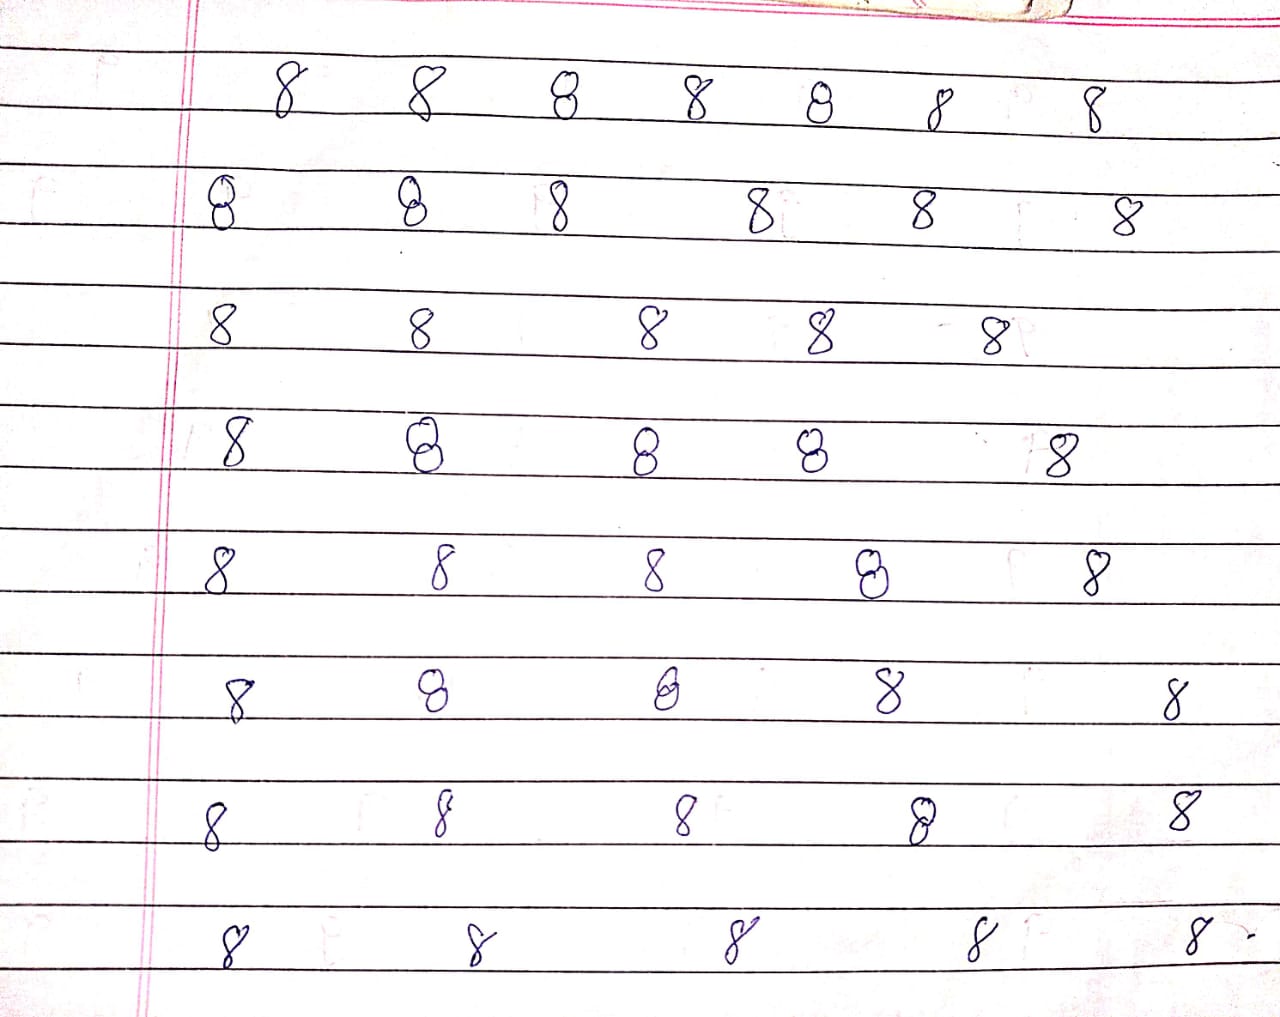 8 8 8 8 8 8 8
8 8 8 8 8 8
8 8 8 8 8
8 8 8 8 8
8 8 8 8 8
8 8 8 8 8
8 8 8 8 8
8 8 8 8 8